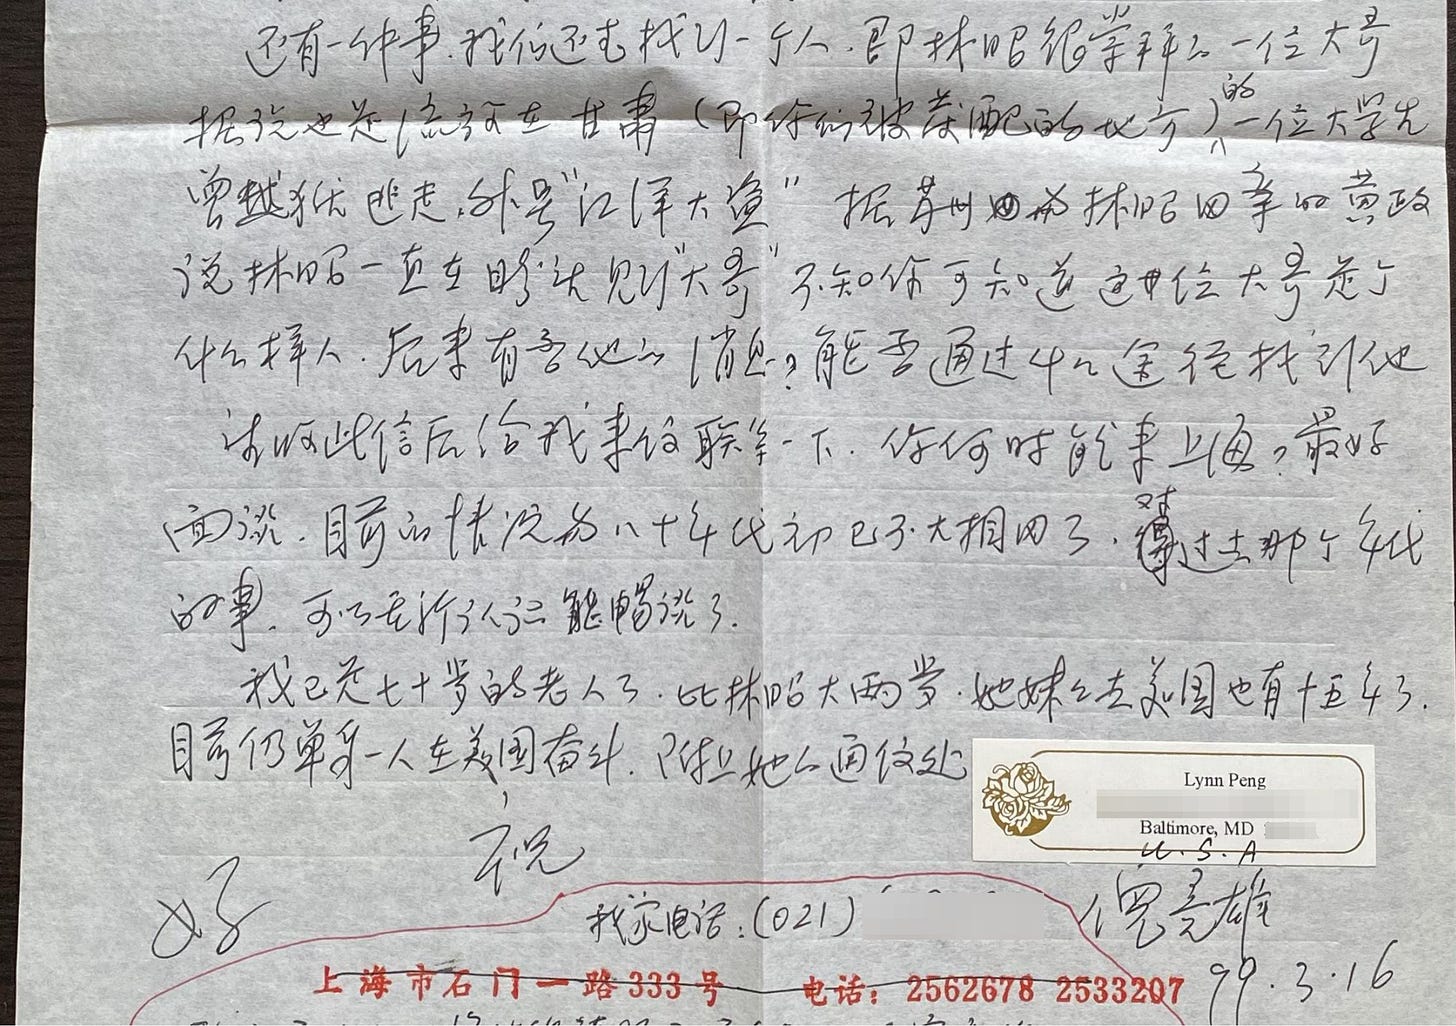 还有一件事，我们还在找到一个人，即林昭很崇拜的一位大哥
据说也是流放在甘肃（即你们被发配的地方）的一位大学生
曾越狱逃走，外号“江洋大盗”据苏州为林昭的黄政
说林昭一直在盼望见到“大哥”不知你可知道这位大哥是个
什么样人，后来有否他的消息？能否通过什么途径找到他
请收此信后给我来信联系一下，你何时能来上海？最好
面谈，目前的情况与八十年代初已不大相同了，对过去那个年代
的事，可以无所顾忌能畅谈了。
我已是七十岁的老人了，比林昭大两岁，她妹妹去美国也有十五年了，
目前仍单身一人在美国奋斗，附上她的通信处
Lynn Peng
Baltimore, MD
U.S.A
祝
好
倪竞雄
我家电话：(021)
99.3.16
上海市石门一路333号 电话：2562678 2533207